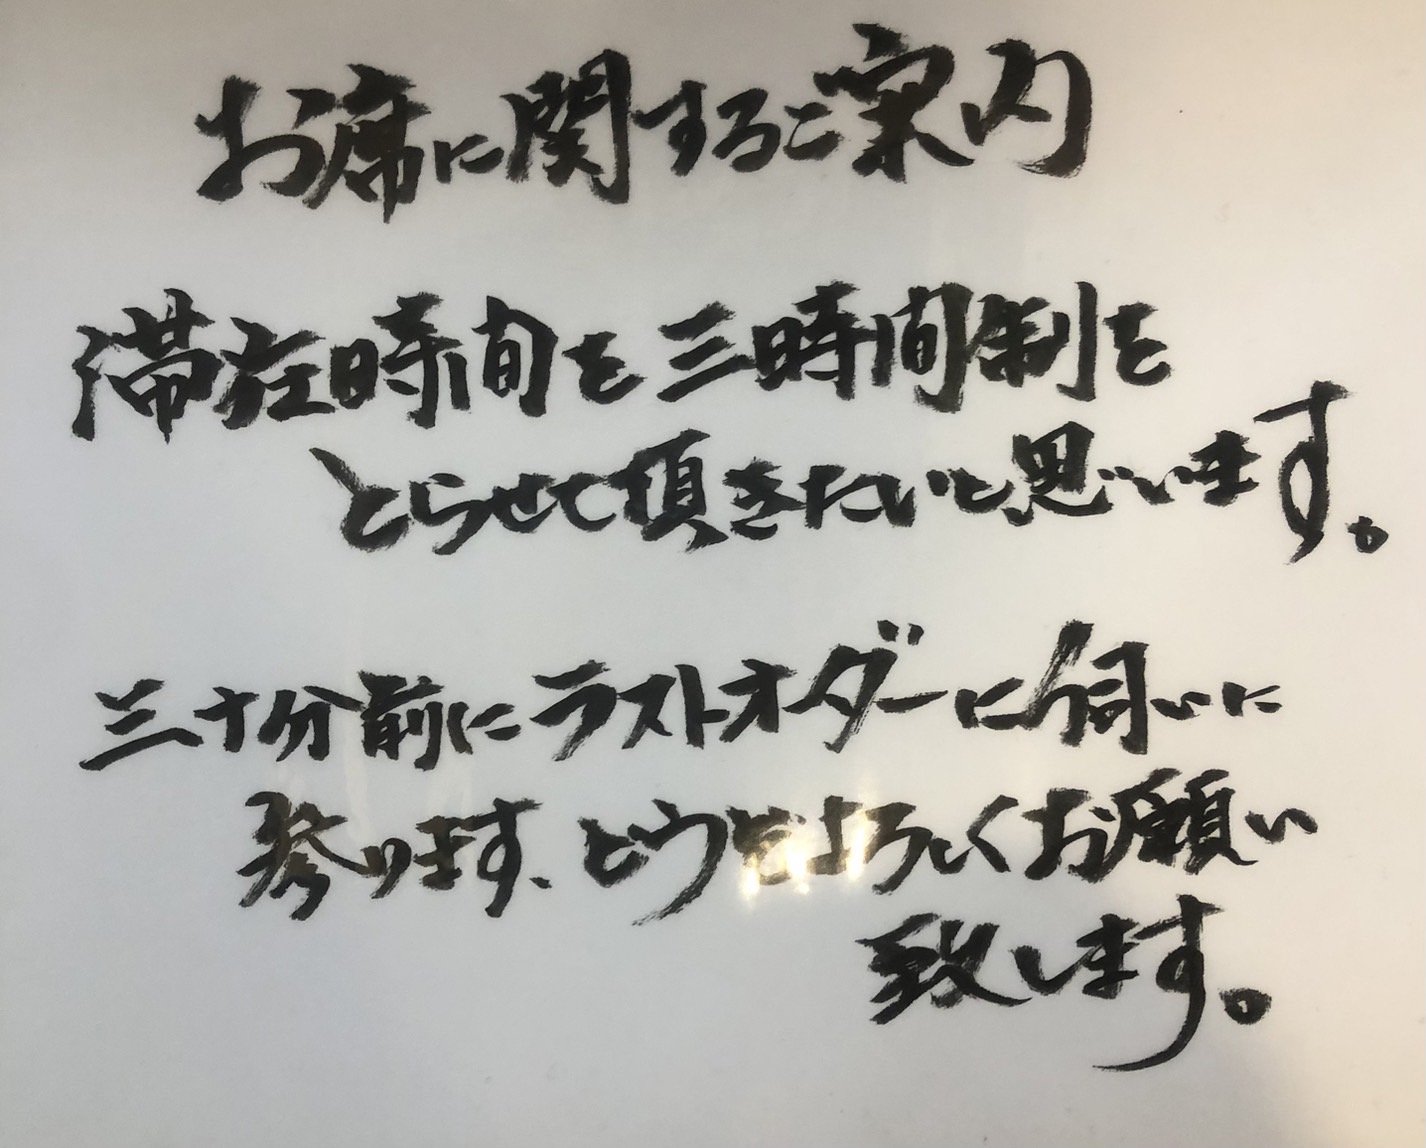 お席に関するご案内
滞在時間を三時間制を
とらせて頂きたいと思います。
三十分前にラストオーダーに伺いに
参ります、どうぞよろしくお願い
致します。